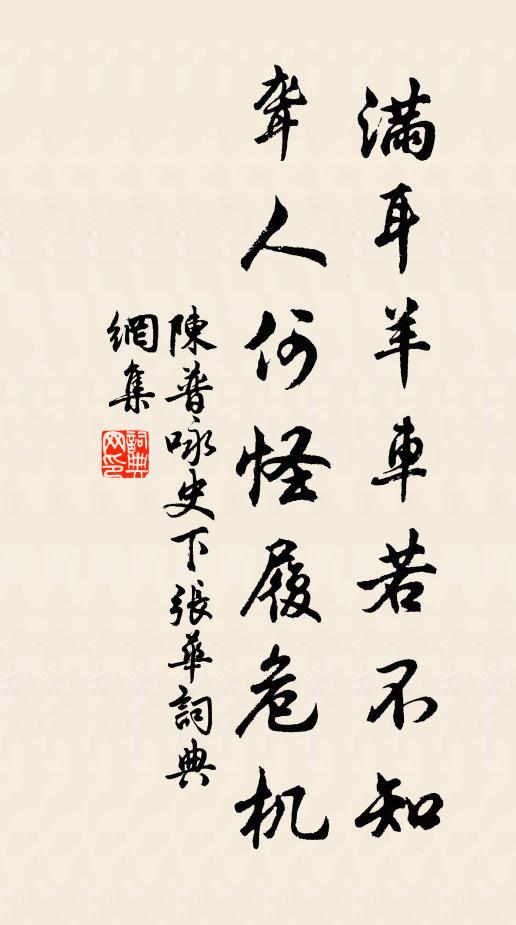 满耳羊車若不知
聋人何怪履危机
陳普咏史下張華詞典
網集
詞典
网印